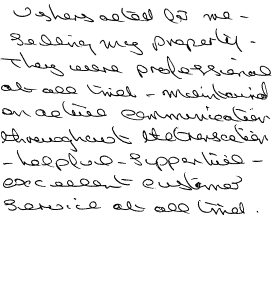 Ushers acted for me -
selling my property -
They were professional
at all times - maintained
an active communication
throughout the transaction
- helpful - supportive -
excellent customer
service at all times.